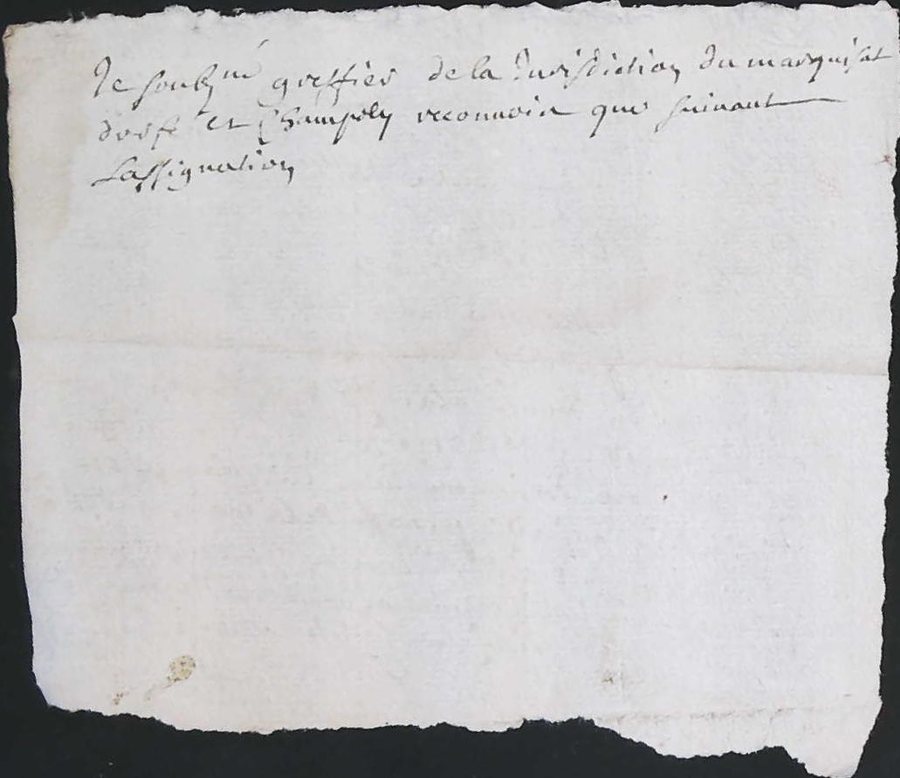 Je soubzné greffier de la Jurisdiction du marquisat
durfé et Champoly reconnois que suivant
Lassignation